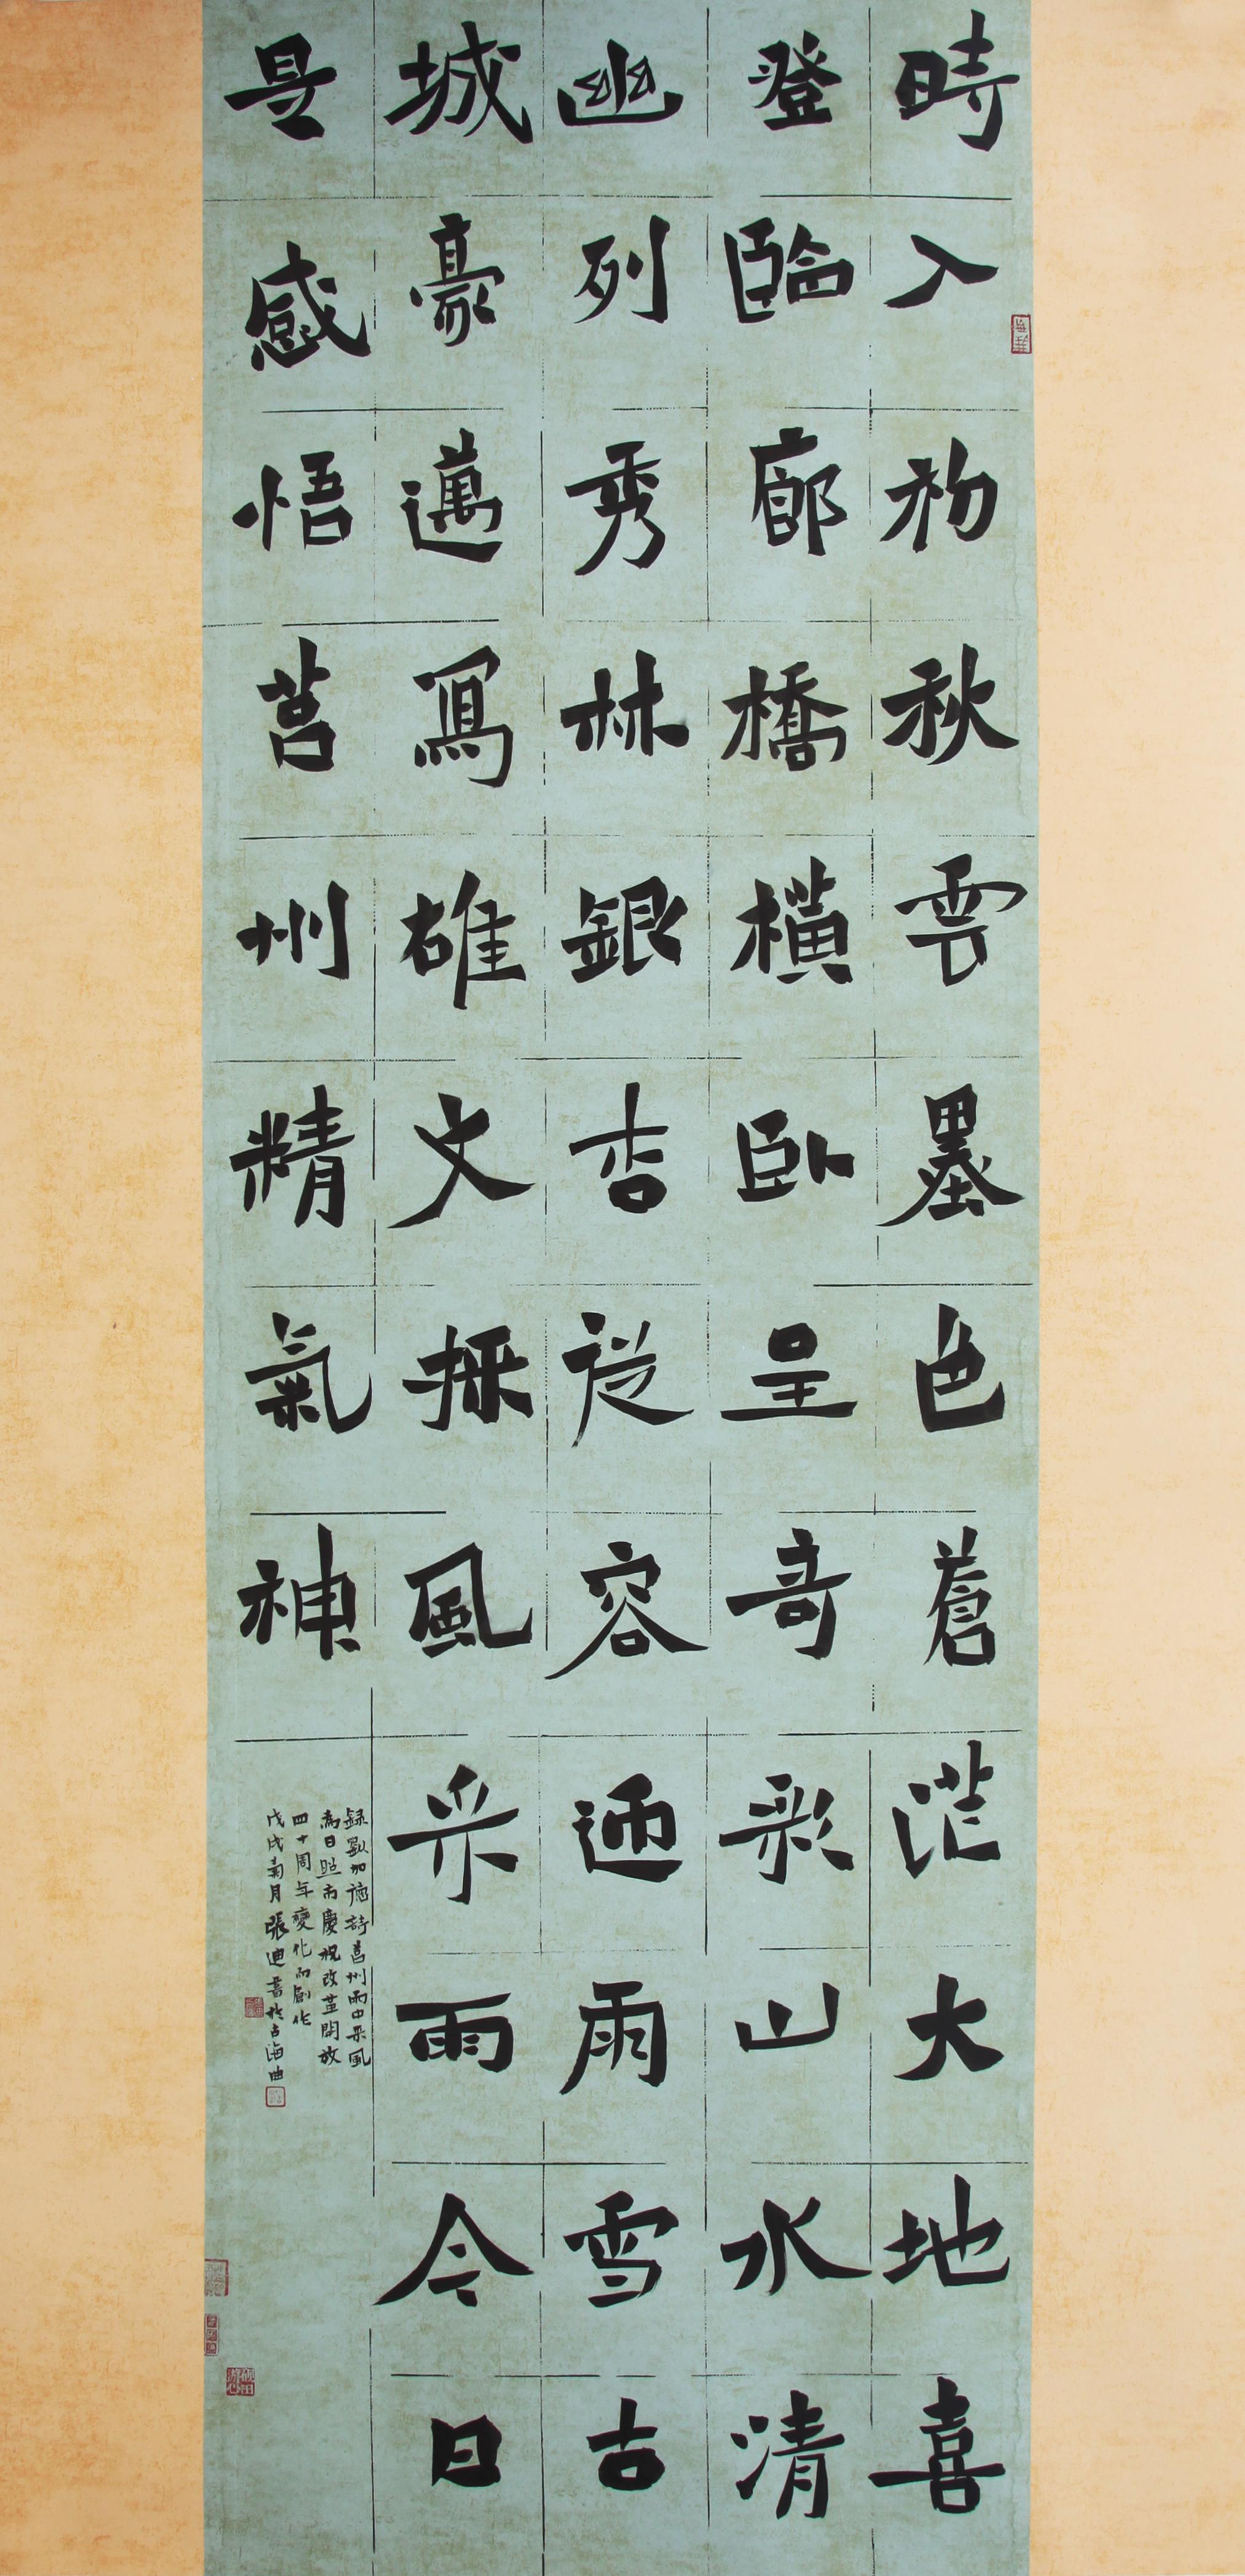 時入初秋雲墨色蒼茫大地喜
登臨廊橋橫臥呈奇彩山水清
幽列秀林銀杏從容迎雨雪古
城豪邁寫雄文採風采雨今日
是感悟莒州精氣神
錄劉加德詩莒州雨中采風
為日照市慶祝改革開放
四十周年變化而創作
戊戌菊月張迪書於古海曲